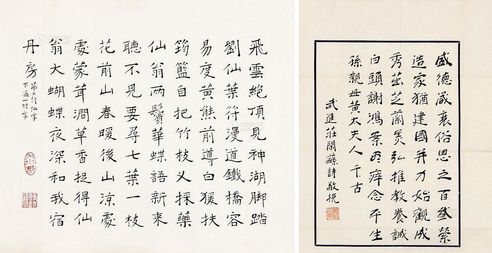 飛雲絕頂見神湖腳踏
劉仙葉符漫道鐵橋容
易度黃熊前導白猨扶
筠籃自把竹枝叉採藥
仙翁兩鬢華蝶語新來
聽不見要尋七葉一枝
花前山春暖後山涼處
處蒙茸澗草香捉得仙
翁大蝴蝶夜深和我宿
丹房
盛德箴衰俗思之百感縈
造家猶建國井臼始觀成
秀茁芝蘭美弘推教養誠
白頭謝鴻案瘁念平生
孫親母黃太夫人千古
武進莊閑詩敬挽